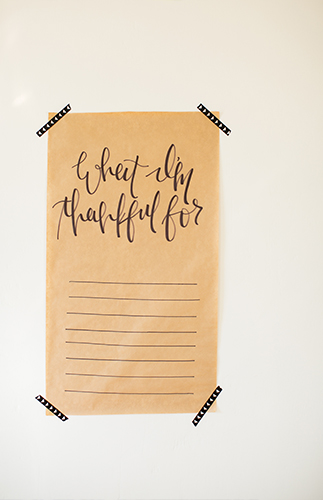 What I'm
thankful for